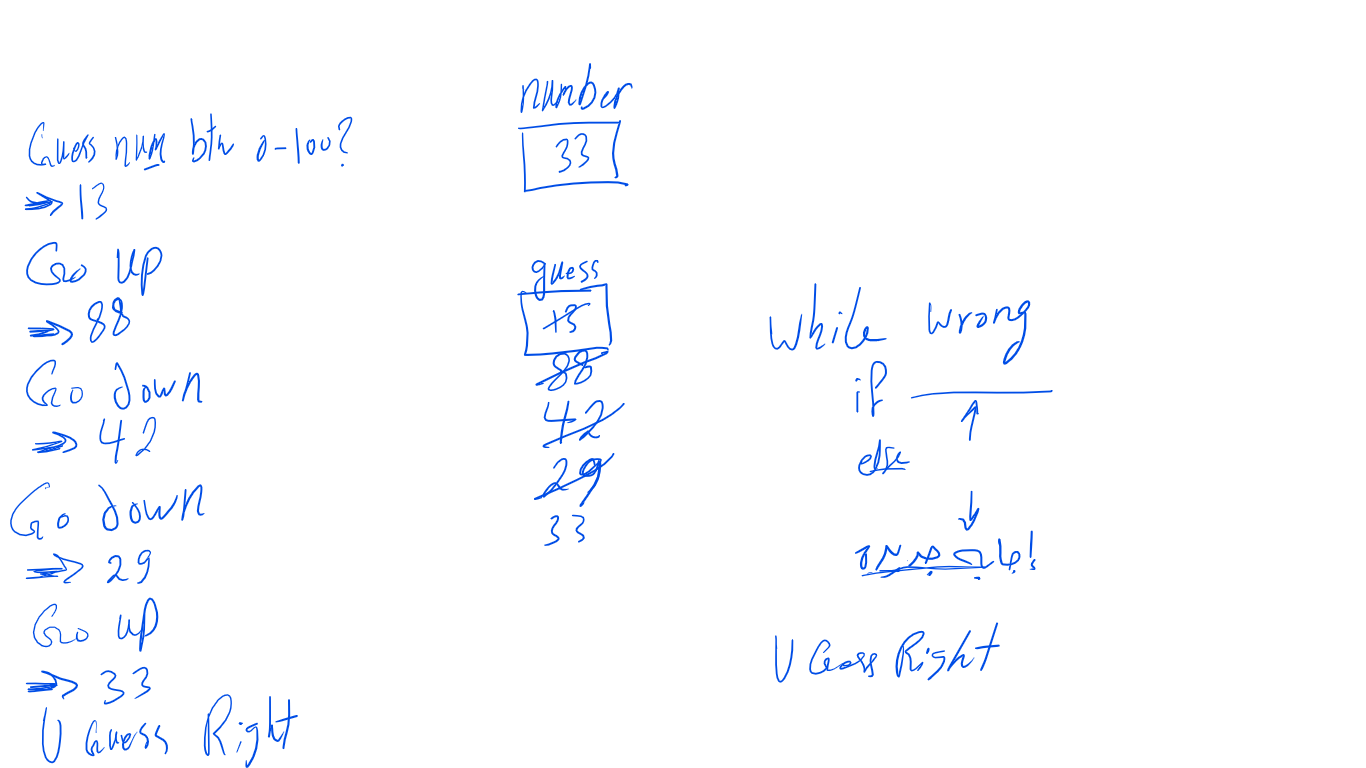 Guess num btn 0-100?
⇒ 13
Go up
⇒ 88
Go down
⇒ 42
Go down
⇒ 29
Go up
⇒ 33
U Guess Right
number
33
guess
13
88
42
29
33
While wrong
if ____ ↑
else ↓
إجابة جديدة
U Guess Right